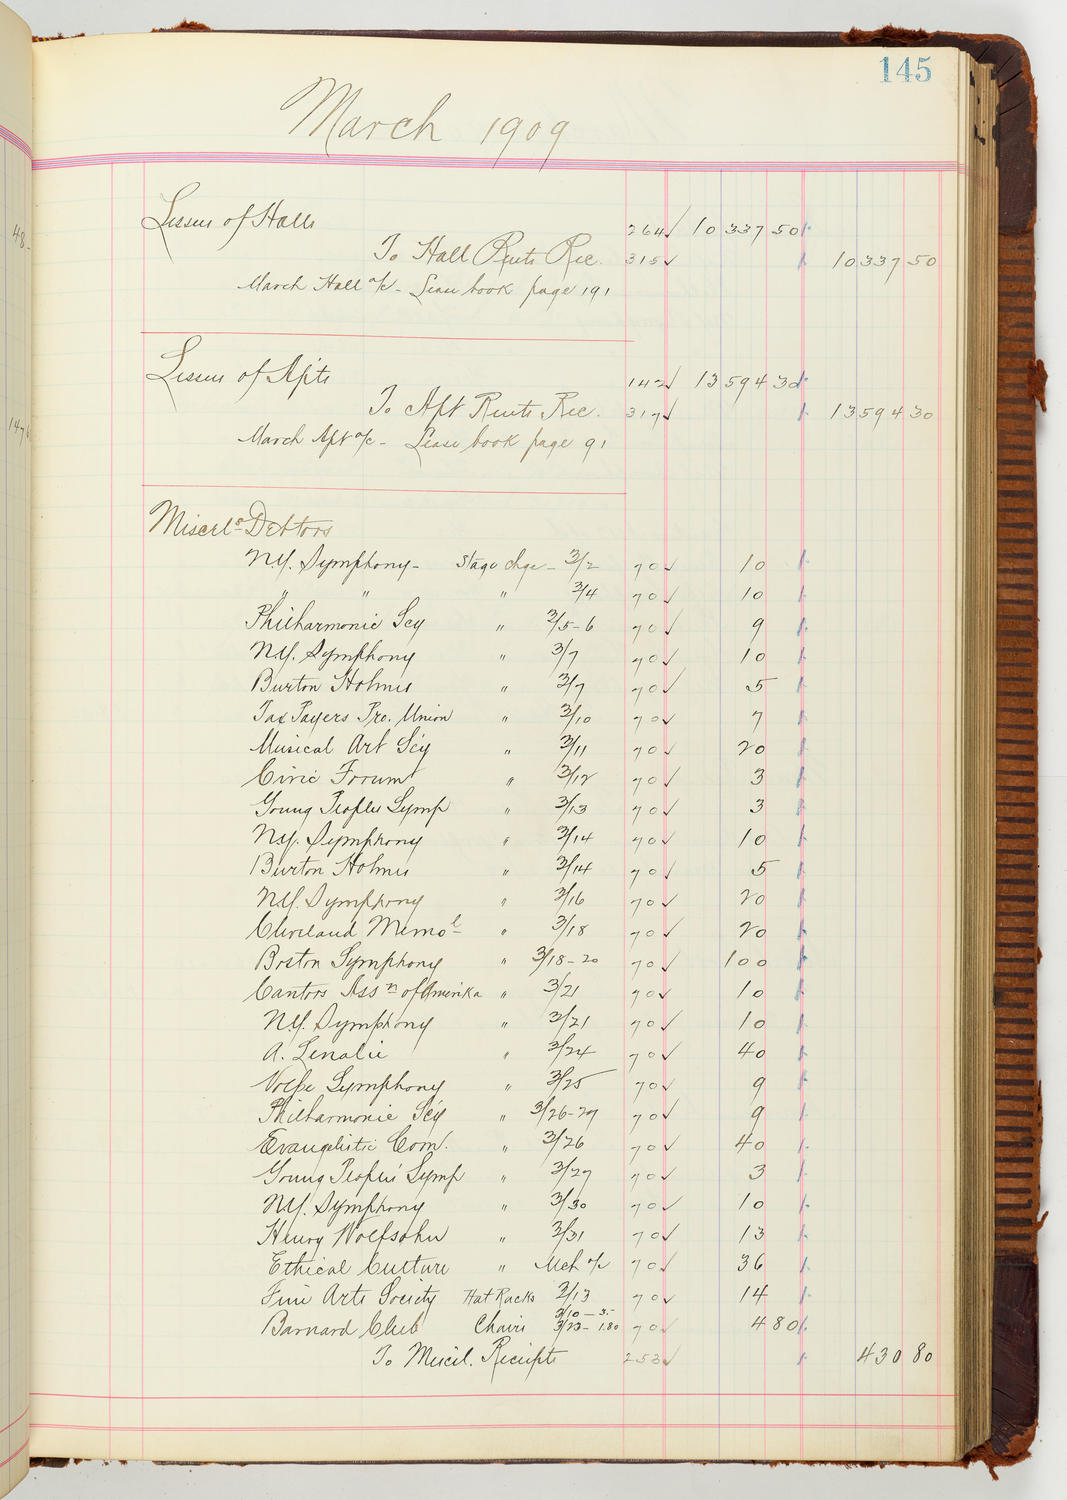 145
March 1909
48-
Lessees of Halls 264 ✓ 10 337 50
To Hall Rents Rec. 315 ✓ 10 337 50
March Hall a/c - Lease book page 191
Lessees of Apts 142 ✓ 13 594 30
147
To Apt Rents Rec. 317 ✓ 13 594 30
March Apt a/c - Lease book page 91
Miscels Debtors
N.Y. Symphony - Stage chge - 3/2 70 ✓ 10
" " " 3/4 70 ✓ 10
Philharmonic Scy " 3/5-6 70 ✓ 9
N.Y. Symphony " 3/7 70 ✓ 10
Burton Holmes " 3/7 70 ✓ 5
Tax Payers Pro. Union " 3/10 70 ✓ 7
Musical Art Scy " 3/11 70 ✓ 20
Civic Forum " 3/12 70 ✓ 3
Young Peoples Symp " 3/13 70 ✓ 3
N.Y. Symphony " 3/14 70 ✓ 10
Burton Holmes " 3/14 70 ✓ 5
N.Y. Symphony " 3/16 70 ✓ 20
Cleveland Memol " 3/18 70 ✓ 20
Boston Symphony " 3/18-20 70 ✓ 100
Cantors Assn of Amerika " 3/21 70 ✓ 10
N.Y. Symphony " 3/21 70 ✓ 10
A. Lenalie " 3/24 70 ✓ 40
Volpe Symphony " 3/25 70 ✓ 9
Philharmonic Scy " 3/26-27 70 ✓ 9
Evangelistic Com. " 3/26 70 ✓ 40
Young Peoples' Symp " 3/27 70 ✓ 3
N.Y. Symphony " 3/30 70 ✓ 10
Henry Wolfsohn " 3/31 70 ✓ 13
Ethical Culture " Mch a/c 70 ✓ 36
Fine Arts Society Hat Racks 3/13 70 ✓ 14
3/10 - 3.-
Barnard Club Chairs 3/23 - 1.80 70 ✓ 4 80
To Miscel. Receipts 253 ✓ 430 80